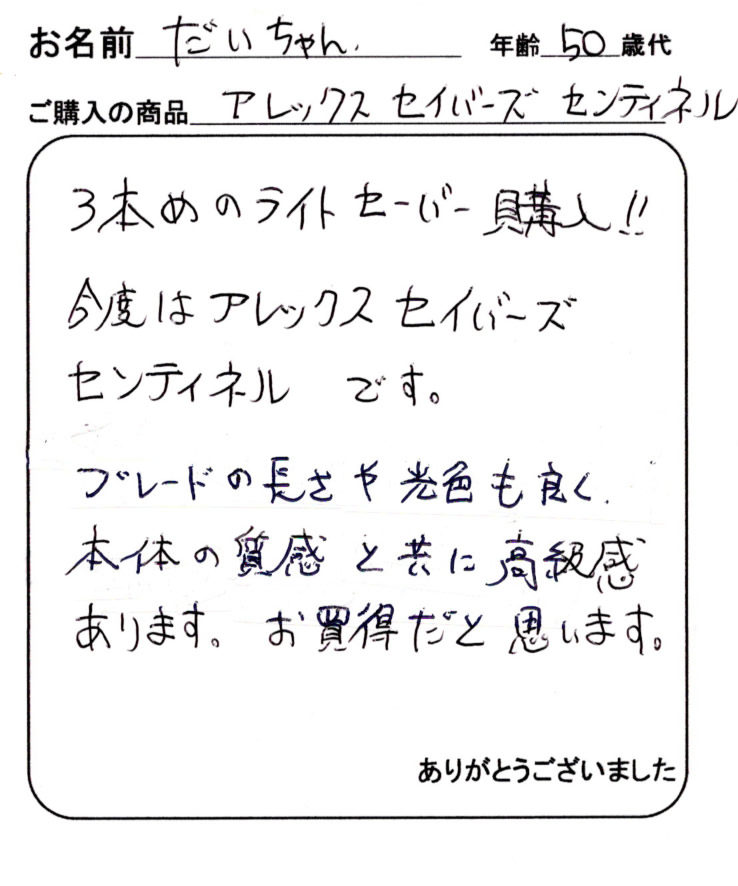 お名前 だいちゃん. 年齢 50 歳代
ご購入の商品 アレックス セイバーズ センティネル
3本めのライトセーバー購入!!
今度はアレックス セイバーズ
センティネル です。
ブレードの長さや光色も良く.
本体の質感と共に高級感
あります。お買得だと思います。
ありがとうございました